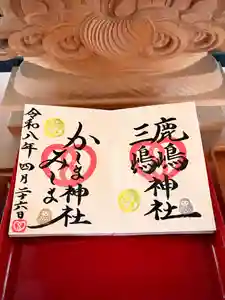 鹿嶋
三嶋神社
かしま神社
みしま
令和八年四月二十六日